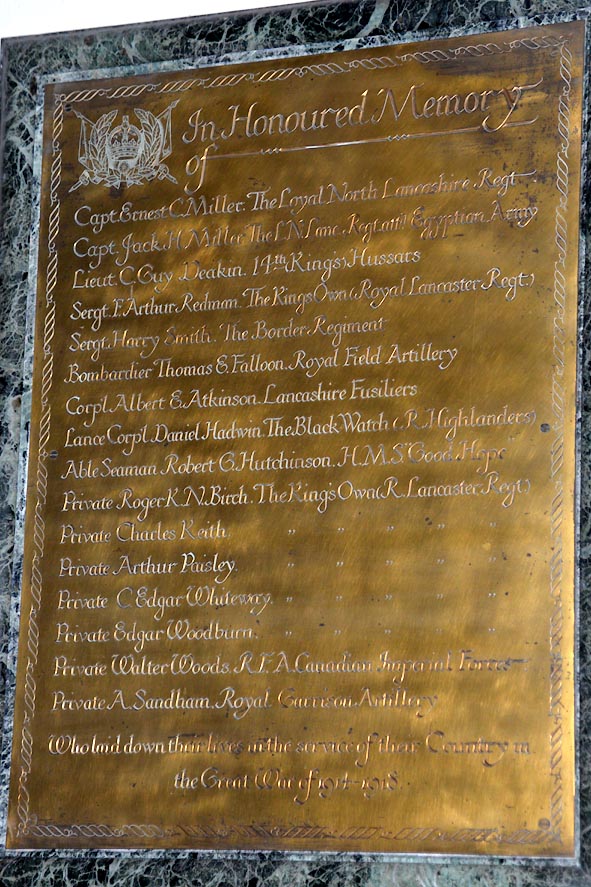 In Honoured Memory
of
Capt. Ernest C. Miller. The Loyal North Lancashire Regt
Capt. Jack H. Miller. The L.N. Lanc. Regt. att! Egyptian Army
Lieut. C. Guy Deakin. 14th (King's) Hussars
Sergt. F. Arthur Redman. The King's Own (Royal Lancaster Regt.)
Sergt. Harry Smith. The Border Regiment
Bombardier Thomas E. Falloon. Royal Field Artillery
Corp'l. Albert E. Atkinson. Lancashire Fusiliers
Lance Corp'l. Daniel Hadwin. The Black Watch (R. Highlanders)
Able Seaman. Robert G. Hutchinson. H.M.S. "Good Hope
Private Roger K. N. Birch. The King's Own (R. Lancaster Regt.)
Private Charles Keith. " " " " "
Private Arthur Paisley. " " " " "
Private C. Edgar Whiteway. " " " " "
Private Edgar Woodburn. " " " " "
Private Walter Woods. R.F.A. Canadian Imperial Forces
Private A. Sandham. Royal Garrison Artillery
Who laid down their lives in the service of their Country in
the Great War of 1914-1918.